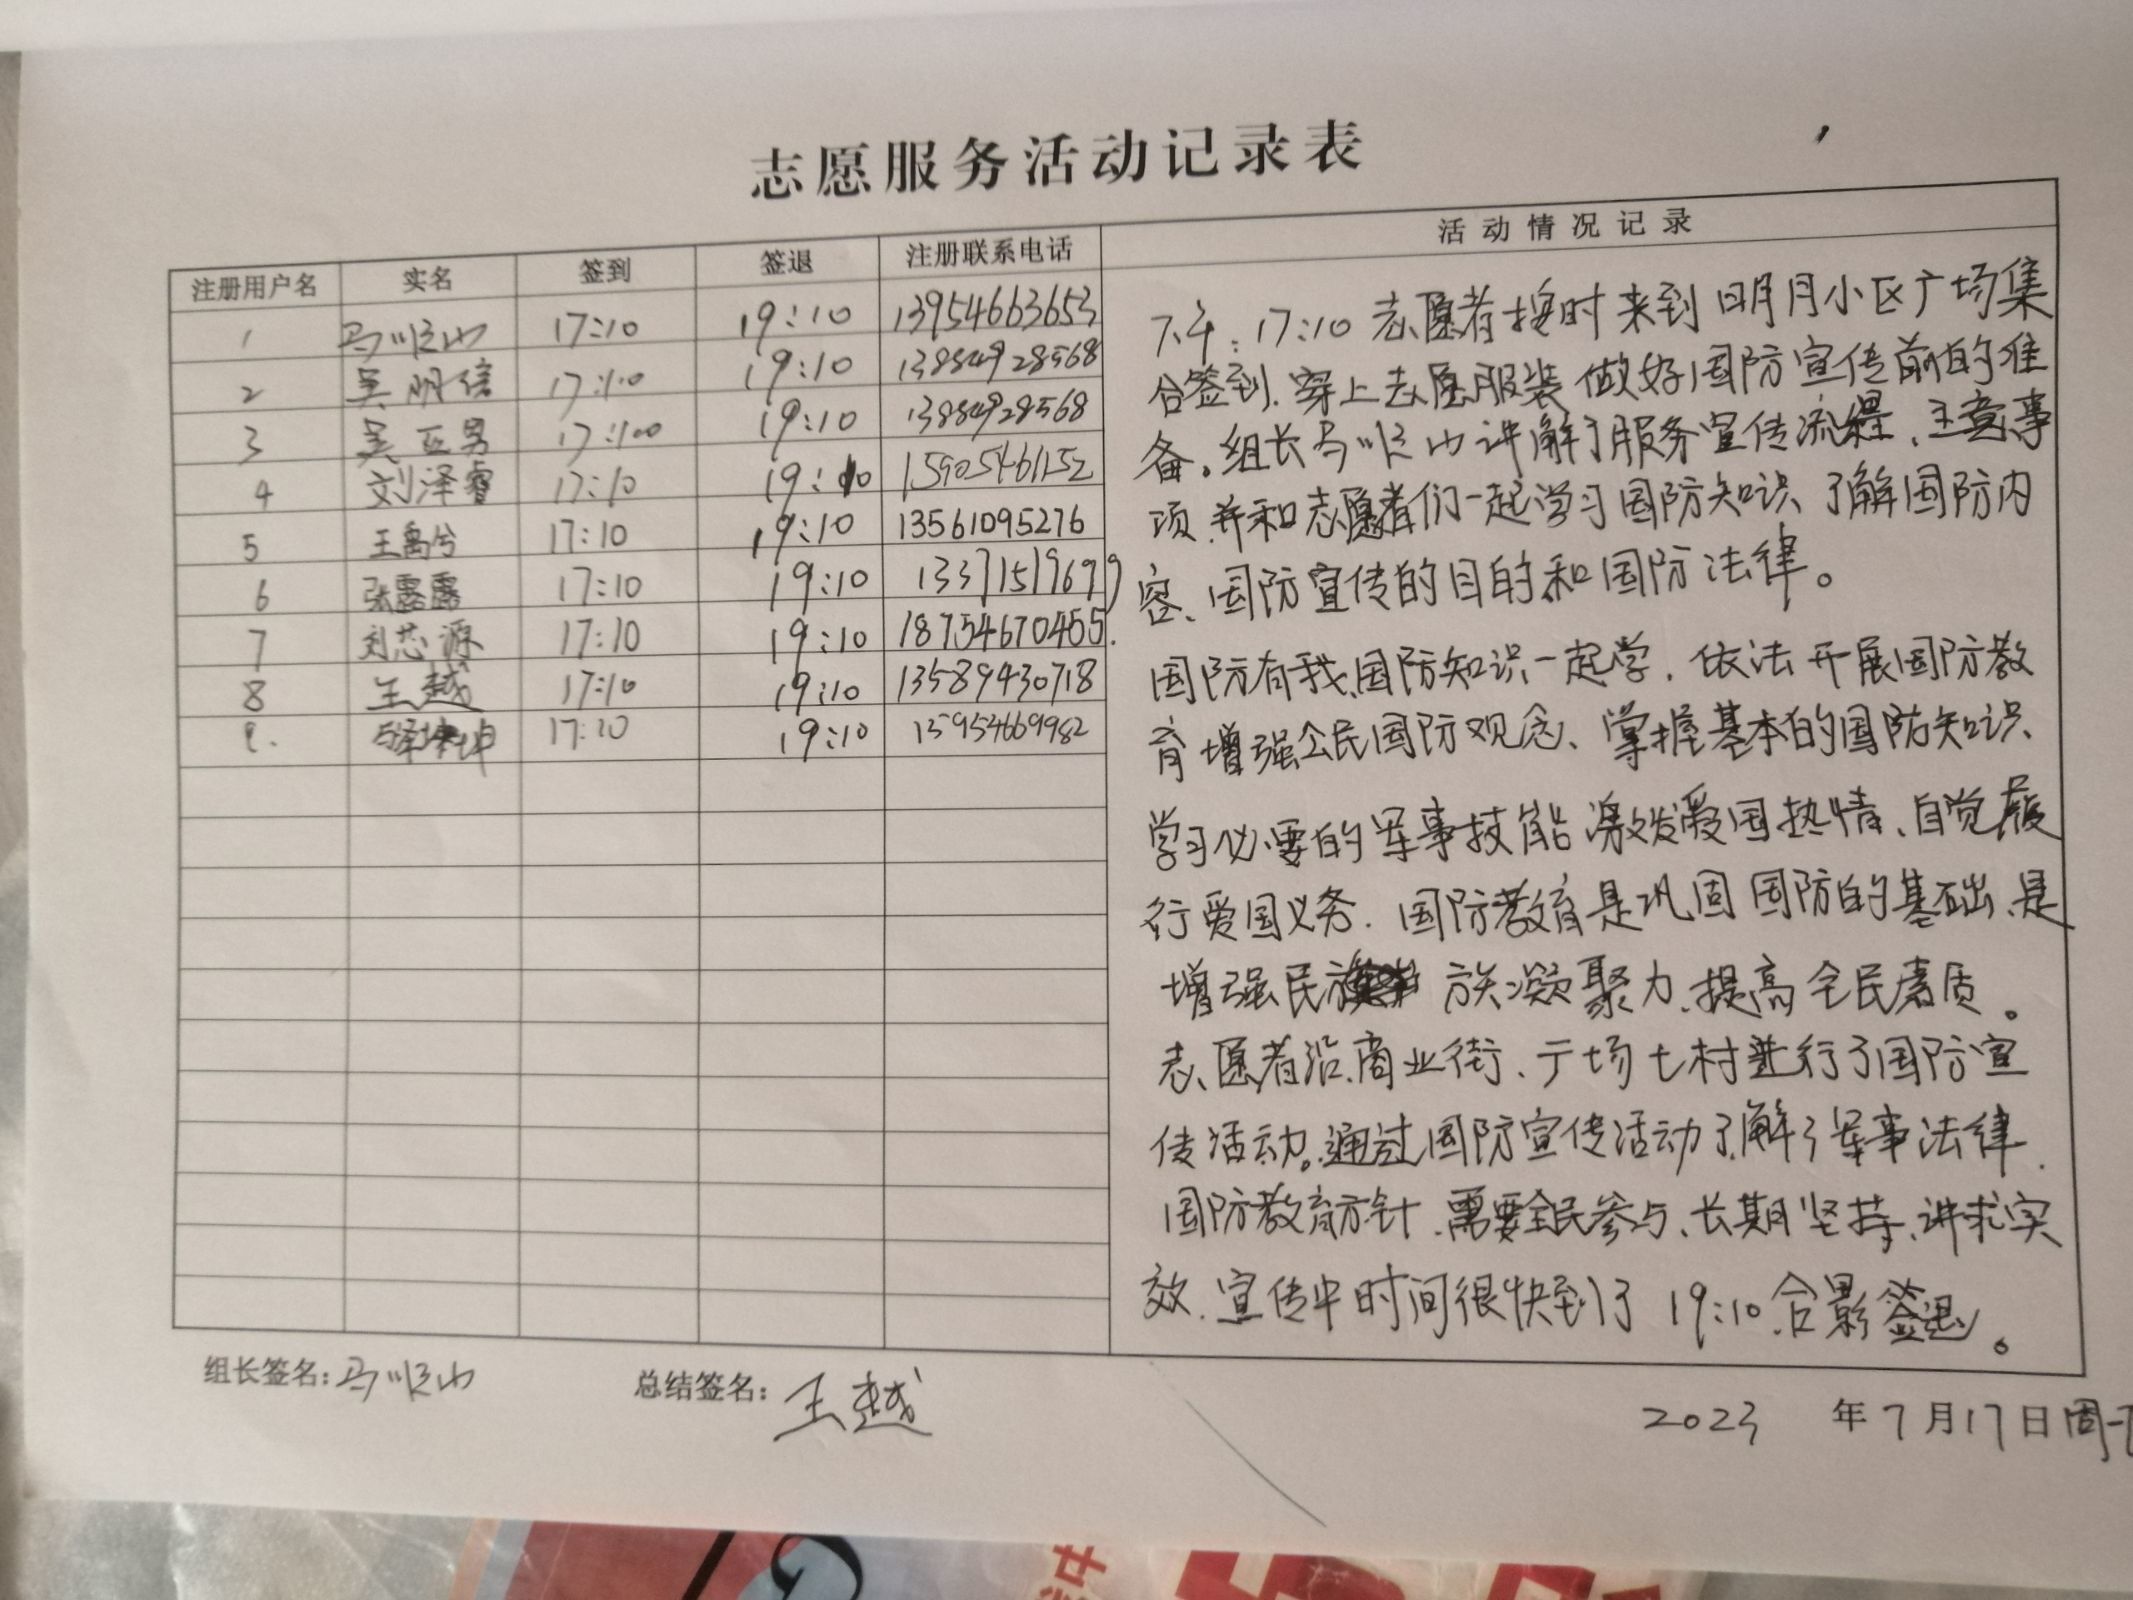 志愿服务活动记录表
注册用户名 实名 签到 签退 注册联系电话 活动情况记录
1 马顺山 17:10 19:10 13954663653
2 吴明信 17:10 19:10 13884928568
3 吴亚男 17:10 19:10 13884928568
4 刘泽睿 17:10 19:10 15905461152
5 王禹兮 17:10 19:10 13561095276
6 张露露 17:10 19:10
7 刘芯源 17:10 19:10 18754670455
8 王越 17:10 19:10 13589430718
9. 17:10 19:10 135954669982
下午:17:10志愿者按时来到明月小区广场集
合签到、穿上志愿服装做好国防宣传前的准
备。组长马顺山讲解了服务宣传流程、主意事
项、并和志愿者们一起学习国防知识、了解国防内
容、国防宣传的目的和国防法律。
国防有我、国防知识一起学,依法开展国防教
育增强公民国防观念、掌握基本的国防知识、
学习必要的军事技能激发爱国热情、自觉履
行爱国义务.国防教育是巩固国防的基础、是
增强民族凝聚力、提高全民素质。
志愿者沿商业街、广场七村进行了国防宣
传活动。通过国防宣传活动了解了军事法律、
国防教育方针、需要全民参与、长期坚持、讲求实
效、宣传中时间很快到了19:10合影签退。
组长签名:马顺山 总结签名:王越
2023年7月17日周一